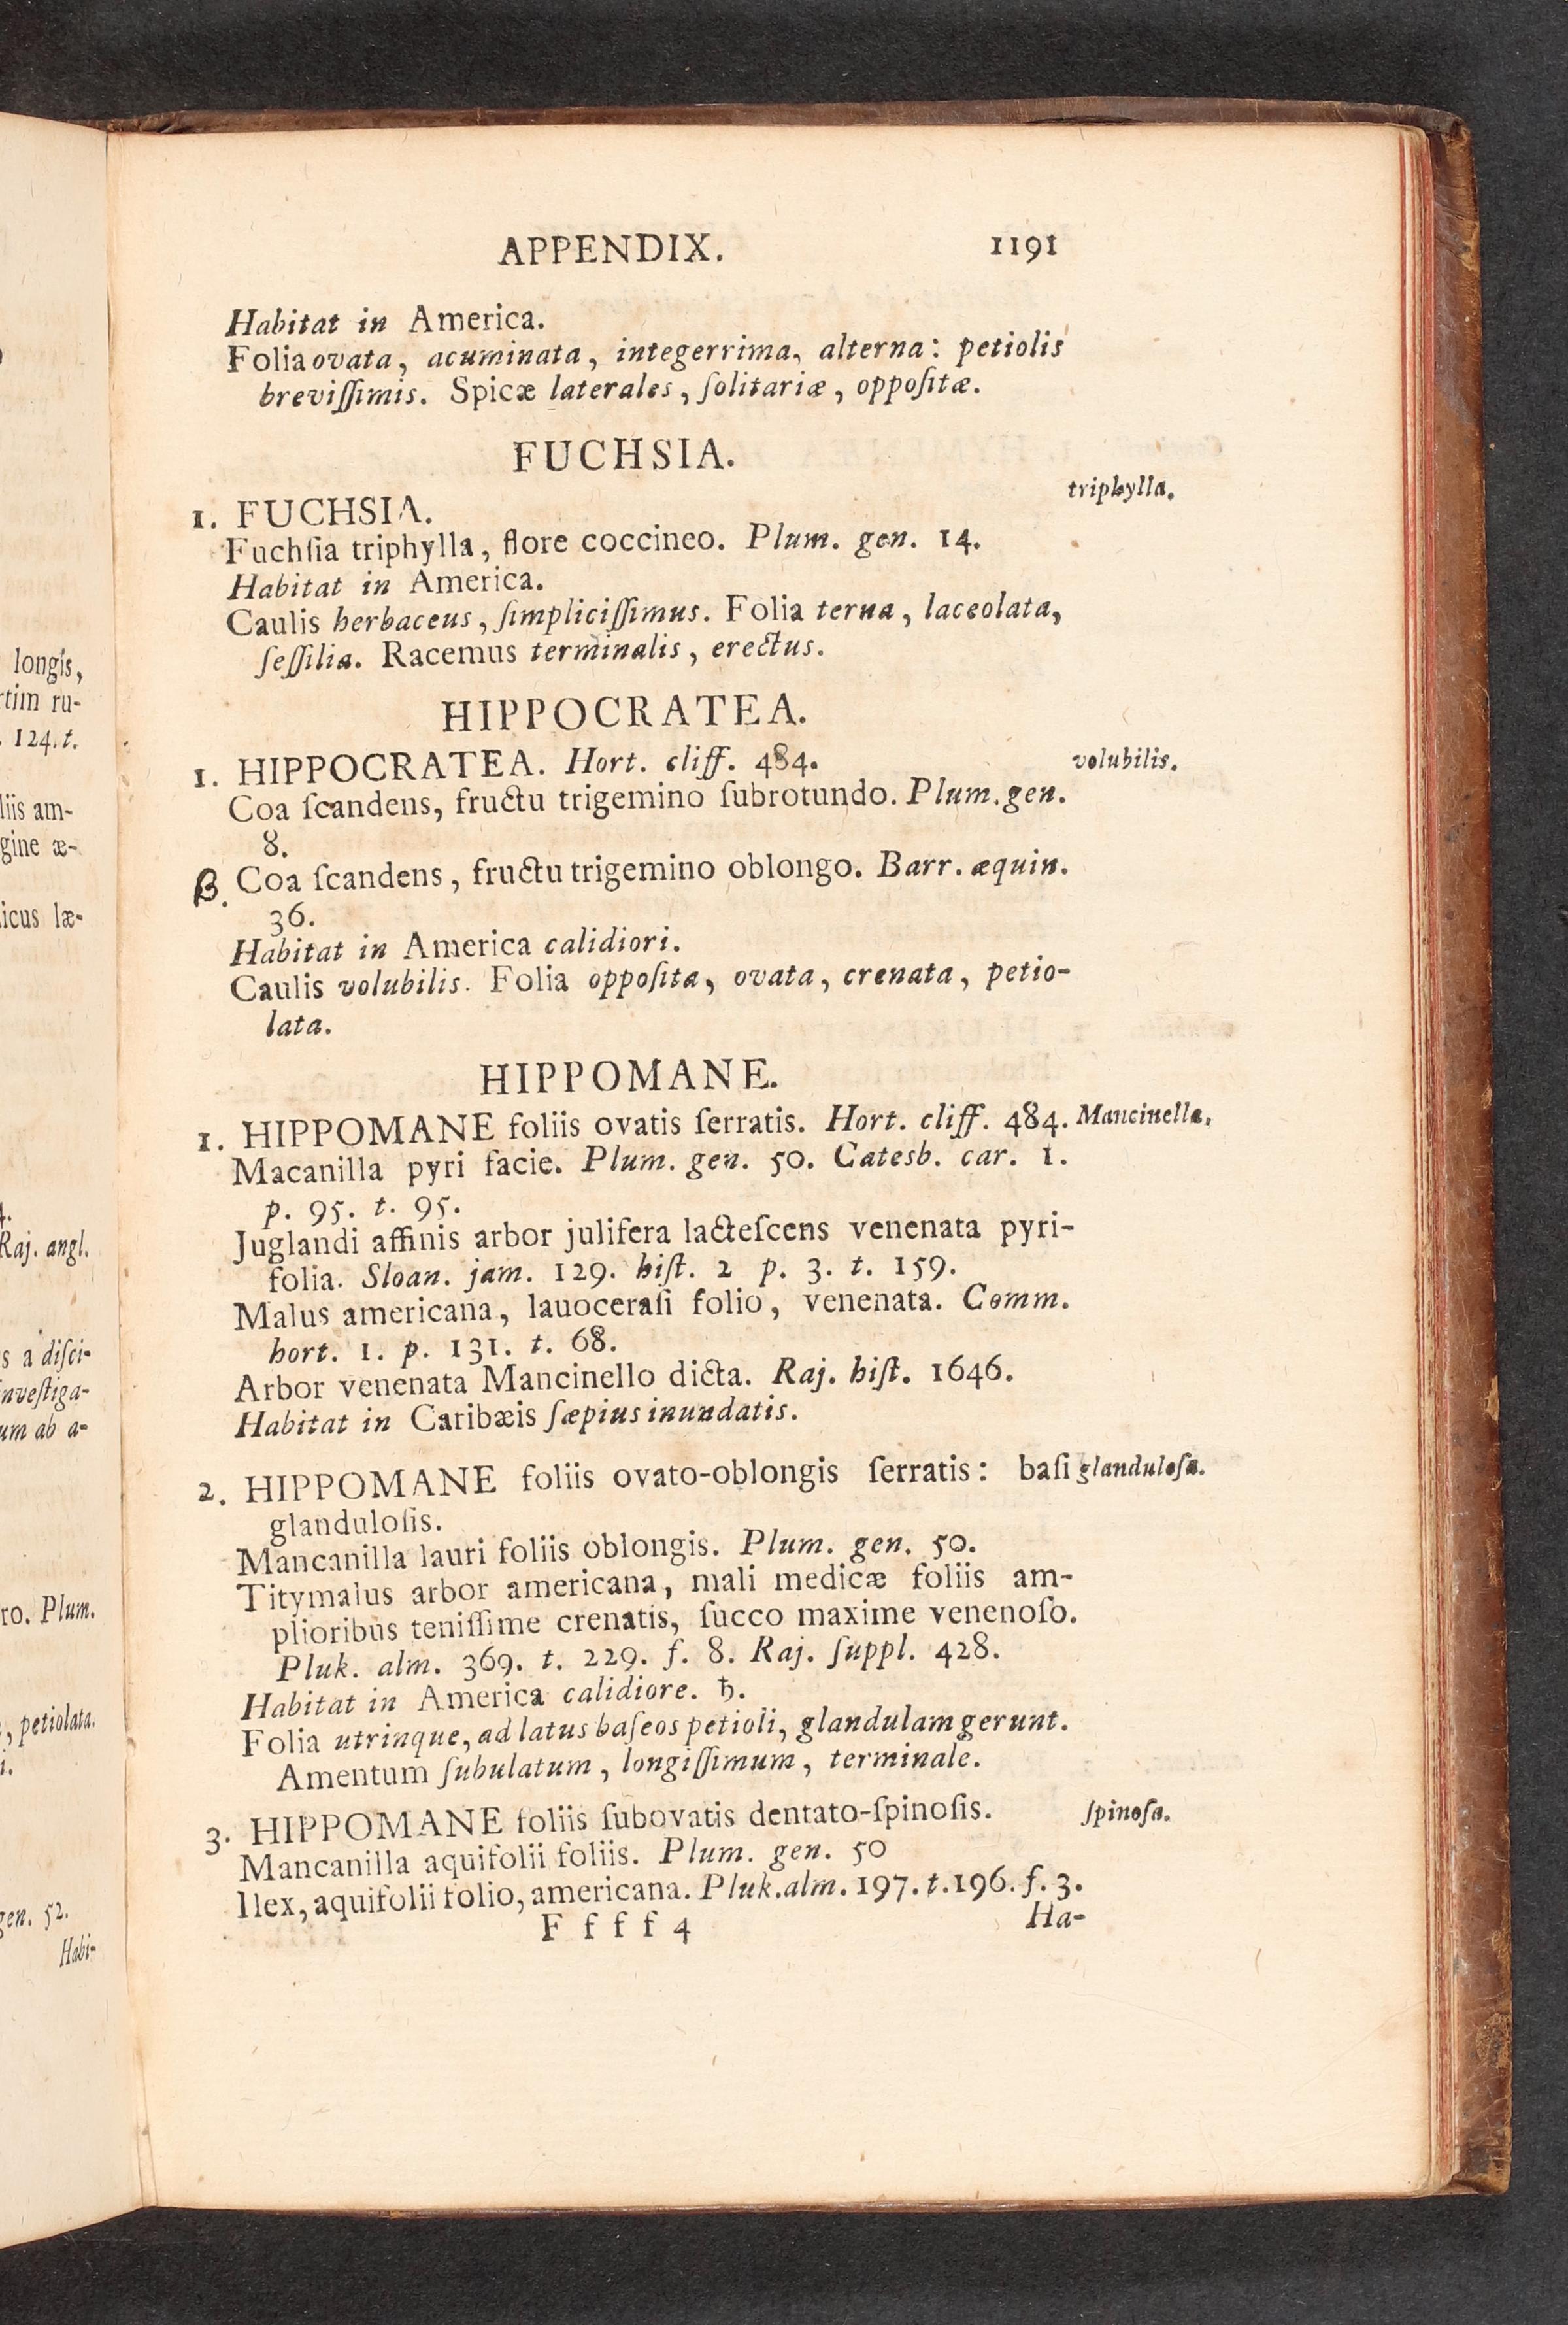 longis,
rtim ru-
124. t.
liis am-
gine æ-
icus læ-
Raj. angl.
s a diſci-
nveſtiga-
um ab a-
ro. Plum.
, petiolata.
gen. 52.
Habi-
APPENDIX. 1191
Habitat in America.
Folia ovata, acuminata, integerrima, alterna: petiolis
breviſſimis. Spicæ laterales, ſolitariæ, oppoſitæ.
FUCHSIA.
triphylla.
1. FUCHSIA.
Fuchſia triphylla, flore coccineo. Plum. gen. 14.
Habitat in America.
Caulis herbaceus, ſimpliciſſimus. Folia terna, laceolata,
ſeſſilia. Racemus terminalis, erectus.
HIPPOCRATEA.
1. HIPPOCRATEA. Hort. cliff. 484. volubilis.
Coa ſcandens, fructu trigemino ſubrotundo. Plum. gen.
8.
β. Coa ſcandens, fructu trigemino oblongo. Barr. æquin.
36.
Habitat in America calidiori.
Caulis volubilis. Folia oppoſita, ovata, crenata, petio-
lata.
HIPPOMANE.
1. HIPPOMANE foliis ovatis ſerratis. Hort. cliff. 484. Mancinella.
Macanilla pyri facie. Plum. gen. 50. Catesb. car. 1.
p. 95. t. 95.
Juglandi affinis arbor julifera lacteſcens venenata pyri-
folia. Sloan. jam. 129. hiſt. 2 p. 3. t. 159.
Malus americana, lauoceraſi folio, venenata. Comm.
hort. 1. p. 131. t. 68.
Arbor venenata Mancinello dicta. Raj. hiſt. 1646.
Habitat in Caribæis ſæpius inundatis.
2. HIPPOMANE foliis ovato-oblongis ſerratis: baſi glanduloſa.
glanduloſis.
Mancanilla lauri foliis oblongis. Plum. gen. 50.
Titymalus arbor americana, mali medicæ foliis am-
plioribus teniſſime crenatis, ſucco maxime venenoſo.
Pluk. alm. 369. t. 229. f. 8. Raj. ſuppl. 428.
Habitat in America calidiore. ♄.
Folia utrinque, ad latus baſeos petioli, glandulam gerunt.
Amentum ſubulatum, longiſſimum, terminale.
3. HIPPOMANE foliis ſubovatis dentato-ſpinoſis. ſpinoſa.
Mancanilla aquifolii foliis. Plum. gen. 50
Ilex, aquifolii folio, americana. Pluk. alm. 197. t. 196. f. 3.
F f f f 4 Ha-